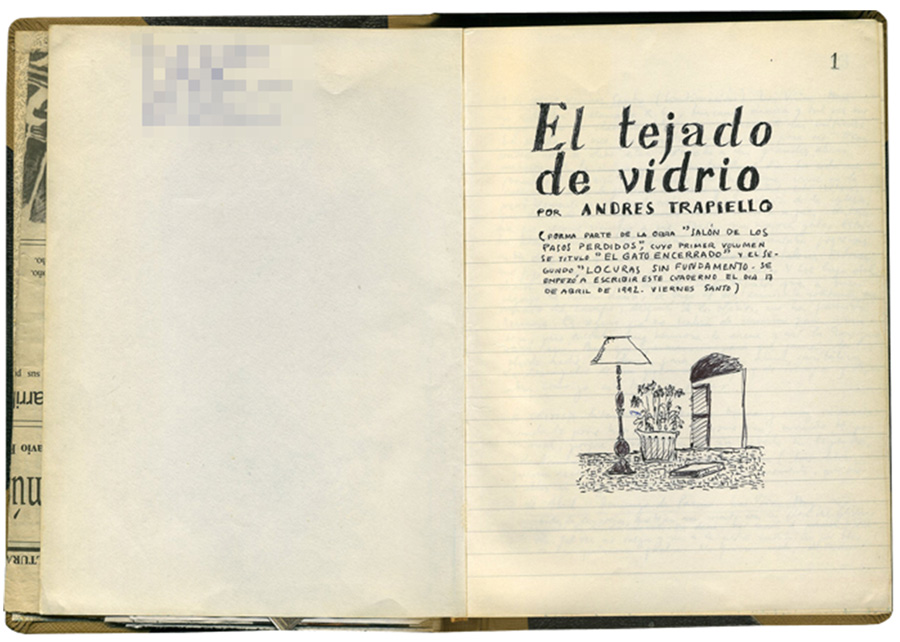 1
El tejado
de vidrio
POR ANDRES TRAPIELLO
(FORMA PARTE DE LA OBRA "SALÓN DE LOS
PASOS PERDIDOS", CUYO PRIMER VOLUMEN
SE TITULÓ "EL GATO ENCERRADO" Y EL SE-
GUNDO "LOCURAS SIN FUNDAMENTO. SE
EMPEZÓ A ESCRIBIR ESTE CUADERNO EL DIA 17
DE ABRIL DE 1992. VIERNES SANTO)